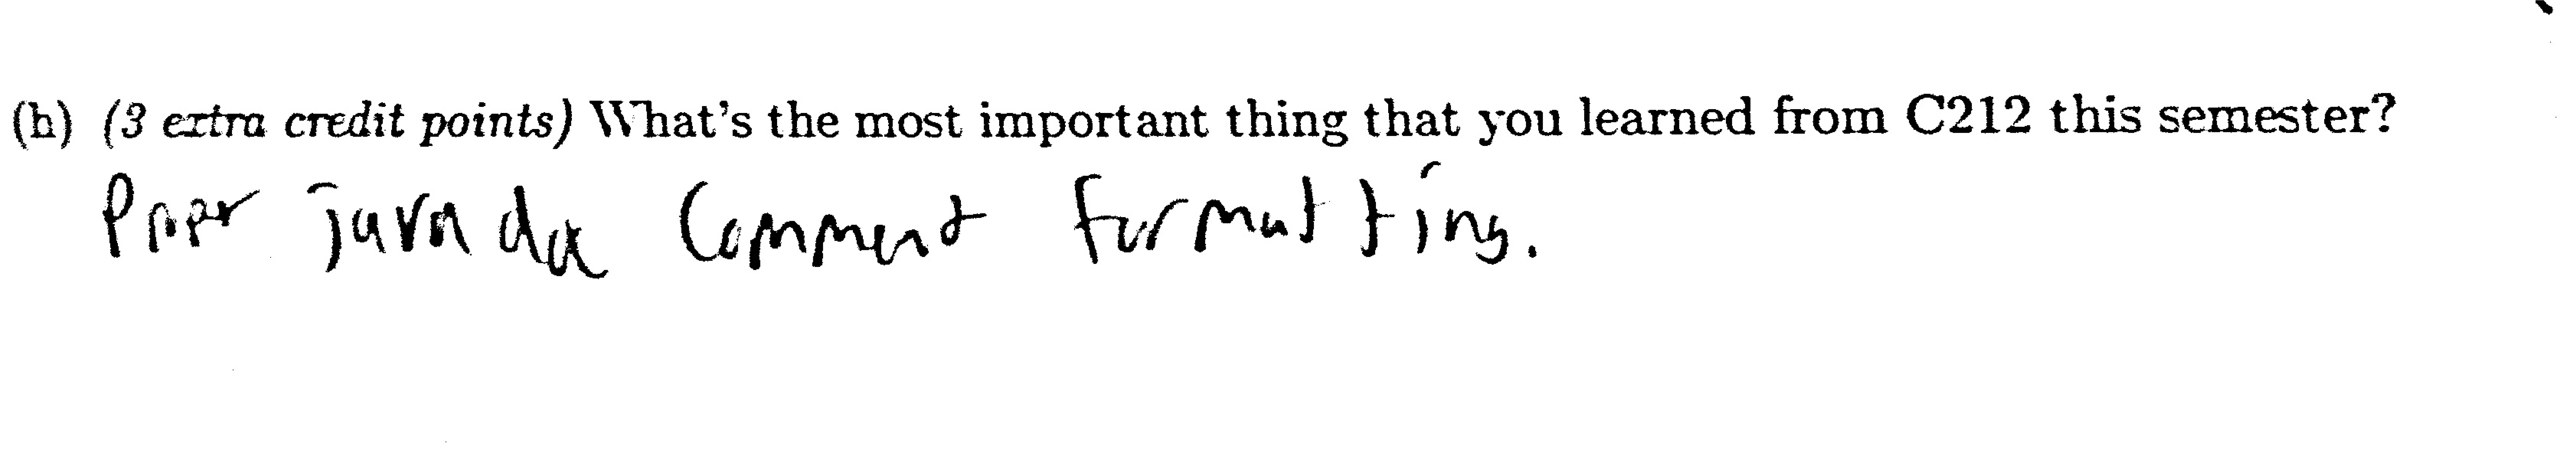 (h) (3 extra credit points) What's the most important thing that you learned from C212 this semester?
Proper java doc Comment formatting.